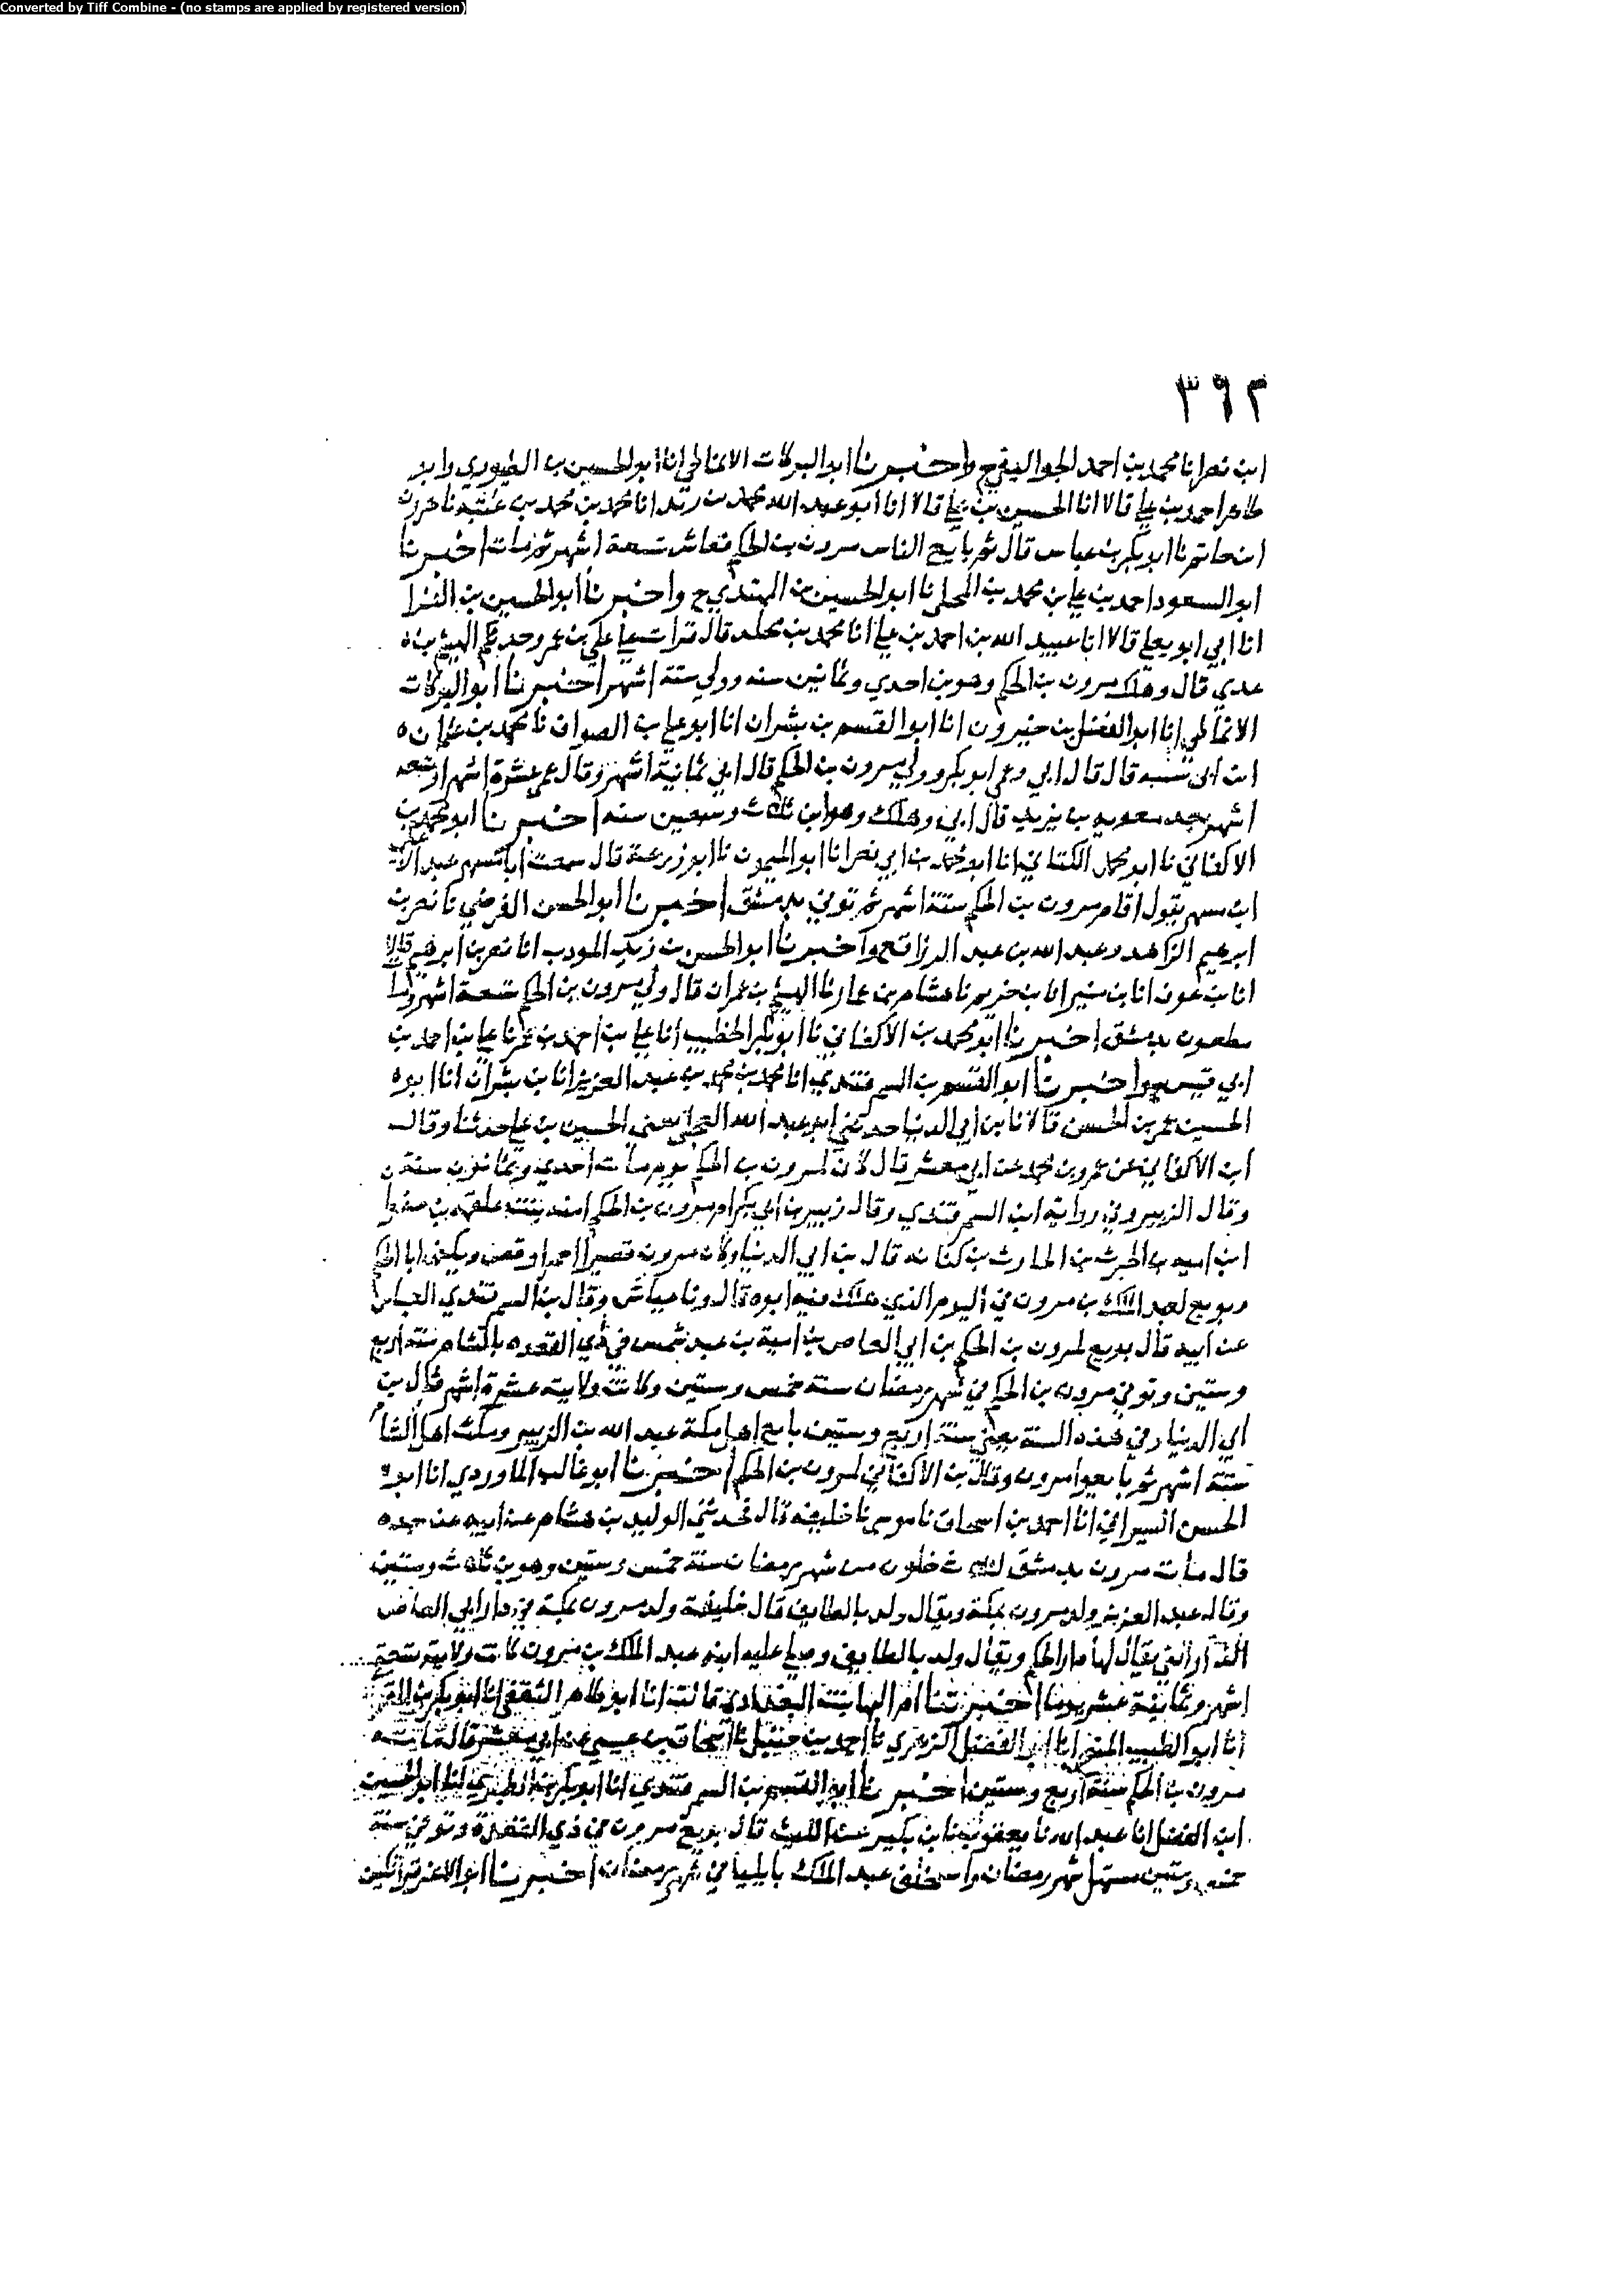 Converted by Tiff Combine - (no stamps are applied by registered version)
٣٩٢
ابن نصر انا محمد بن احمد الجواليقي ح واخبرنا ابو البركات الانماطي انا ابو الحسين بن الطيوري وابو
طاهر احمد بن علي قالا انا الحسين بن علي قالا انا ابو عبد الله محمد بن زيد انا محمد بن محمد بن عقبه نا هرون
ابن حاتم نا ابو بكر بن عياس قال ثم بايع الناس مرون بن الحكم فعاش تسعة اشهر ثم مات اخبرنا
ابو السعود احمد بن علي بن محمد بن المجلي نا ابو الحسين بن المهتدي ح واخبرنا ابو الحسين بن الفرا
انا ابي ابو يعلي قالا انا عبيد الله بن احمد بن علي انا محمد بن مخلد قال قرات علي علي بن عمرو حدثكم الهيثم بن
عدي قال وهلك مرون بن الحكم وهو بن احدي وثمانين سنه وولي ستة اشهر اخبرنا ابو البركات
الانماطي انا ابو الفضل بن خيرون انا ابو القسم بن بشران انا ابو علي بن الصواف نا محمد بن عثمان
ابن ابي شيبه قال قال ابي وعمي ابو بكر وولي مرون بن الحكم قال ابي ثمانية اشهر وقال عمي عشرة اشهر او تسعه
اشهر بعد معويه بن يزيد قال ابي وهلك وهو ابن ثلاث وسبعين سنه اخبرنا ابو محمد بن
الاكفاني نا ابو محمد الكتاني انا ابو محمد بن ابي نصر انا ابو الميمون نا ابو زرعة قال سمعت ابا مسهر عبد الاعلى
ابن مسهر يقول اقام مرون بن الحكم ستة اشهر ثم توفي بدمشق اخبرنا ابو الحسن الفرضي نا نصر بن
ابرهيم الزاهد وعبد الله بن عبد الرزاق ح واخبرنا ابو الحسن بن زيد المودب انا نصر بن ابرهيم قالا
انا بن عوف انا بن منير انا بن خريم نا هشام بن عمار نا الهيثم بن عمران قال ولي مرون بن الحكم تسعة اشهر ومات
مطعون بدمشق اخبرنا ابو محمد بن الاكفاني نا ابو بكر الخطيب انا علي بن احمد بن عمر نا علي بن احمد بن
ابي قيس ح واخبرنا ابو القسم بن السمرقندي انا محمد بن محمد بن عبد العزيز انا بن بشران انا ابو
الحسين عمر بن الحسن قالا نا بن ابي الدنيا حدثني ابو عبد الله العجلي يعني الحسين بن علي حدثنا وقال
ابن الاكفاني عن عمرو بن محمد عن ابي معشر قال كان لمرون بن الحكم يوم مات احدي وثمانون سنة
وقال الزبير وفي رواية ابن السمرقندي وقال زبير بن ابي بكر ام مرون بن الحكم امنه بنت علقمه بن صفوان
ابن اميه بن الحرث بن كنانه قال بن ابي الدنيا وكان مرون قصيرا احمر اوقص ويكنى ابا الحكم
وبويع لعبد الملك بن مرون في اليوم الذي هلك فيه ابوه قال ونا عباس وقال بن السمرقندي العباس
عن ابيه قال بويع لمرون بن الحكم بن ابي العاص بن امية بن عبد شمس في ذي القعده بالشام سنة اربع
وستين وتوفي مرون بن الحكم في شهر رمضان سنة خمس وستين وكانت ولايته عشرة اشهر قال بن
ابي الدنيا وفي هذه السنة يعني سنة اربع وستين بايع اهل مكة عبد الله بن الزبير ومكث اهل الشام
ستة اشهر ثم بايعوا مرون وقال بن الاكفاني لمرون بن الحكم اخبرنا ابو غالب الماوردي انا ابو
الحسن السيرافي انا احمد بن اسحاق نا موسى نا خليفه قال فحدثني الوليد بن هشام عن ابيه عن جده
قال مات مرون بدمشق لثلاث خلون من شهر رمضان سنة خمس وستين وهو بن ثلاث وستين
وقال عبد العزيز ولد مرون بمكة ويقال ولد بالطايف قال خليفة ولد مرون بمكة في دار ابي العاص
الدار التي يقال لها دار الحكم ويقال ولد بالطايف وصلي عليه ابنه عبد الملك بن مرون كانت ولايته تسعة
اشهر وثمانية عشر يوما اخبرتنا ام البها بنت البغدادي قالت انا ابو طاهر الثقفي انا ابو بكر بن المقري
انا ابو الطيب المنبجي انا ابو الفضل الزهري نا احمد بن حنبل نا اسحاق بن عيسي عن ابي معشر قال مات
مرون بن الحكم سنة اربع وستين اخبرنا ابو القسم بن السمرقندي انا ابو بكر بن الطبري انا ابو الحسين
ابن الفضل انا عبد الله نا يعقوب نا بن بكير عن الليث قال بويع مرون في ذي القعدة وتوفي سنة
خمس وستين مستهل شهر رمضان واستخلف عبد الملك بايليا في شهر رمضان اخبرنا ابو الاعز قراتكين